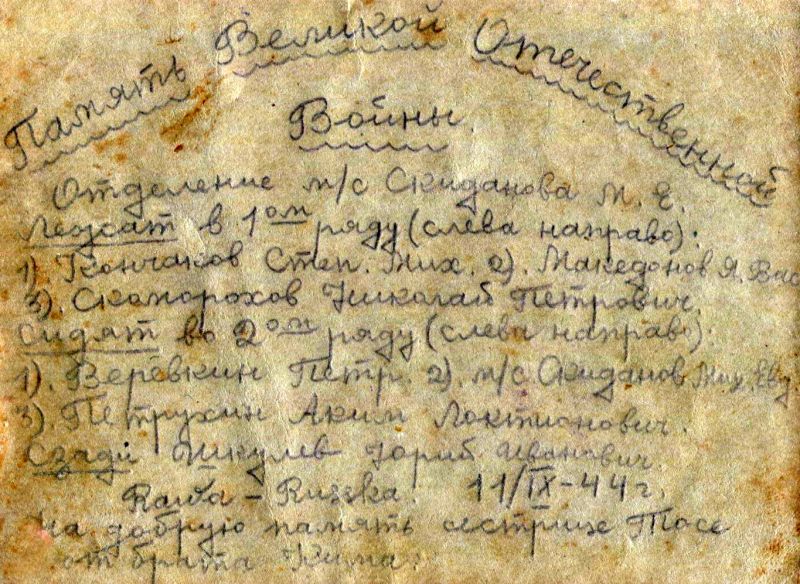 Память Великой Отечественной
Войны.
Отделение м/с Скиданова М. Е.
Лежат в 1ом ряду (слева направо):
1). Кончаков Степ. Мих. 2). Македонов Я. Вас
3). Скоморохов Николай Петрович.
Сидят во 2ом ряду (слева направ):
1). Веревкин Петр. 2). м/с Скиданов Мих. Евд
3) Петрухин Аким Локтионович.
Сзади Шкулев Юрий Иванович.
Rawa – Ruska. 11/IX-44 г.
На добрую память сестрице Тосе
от брата